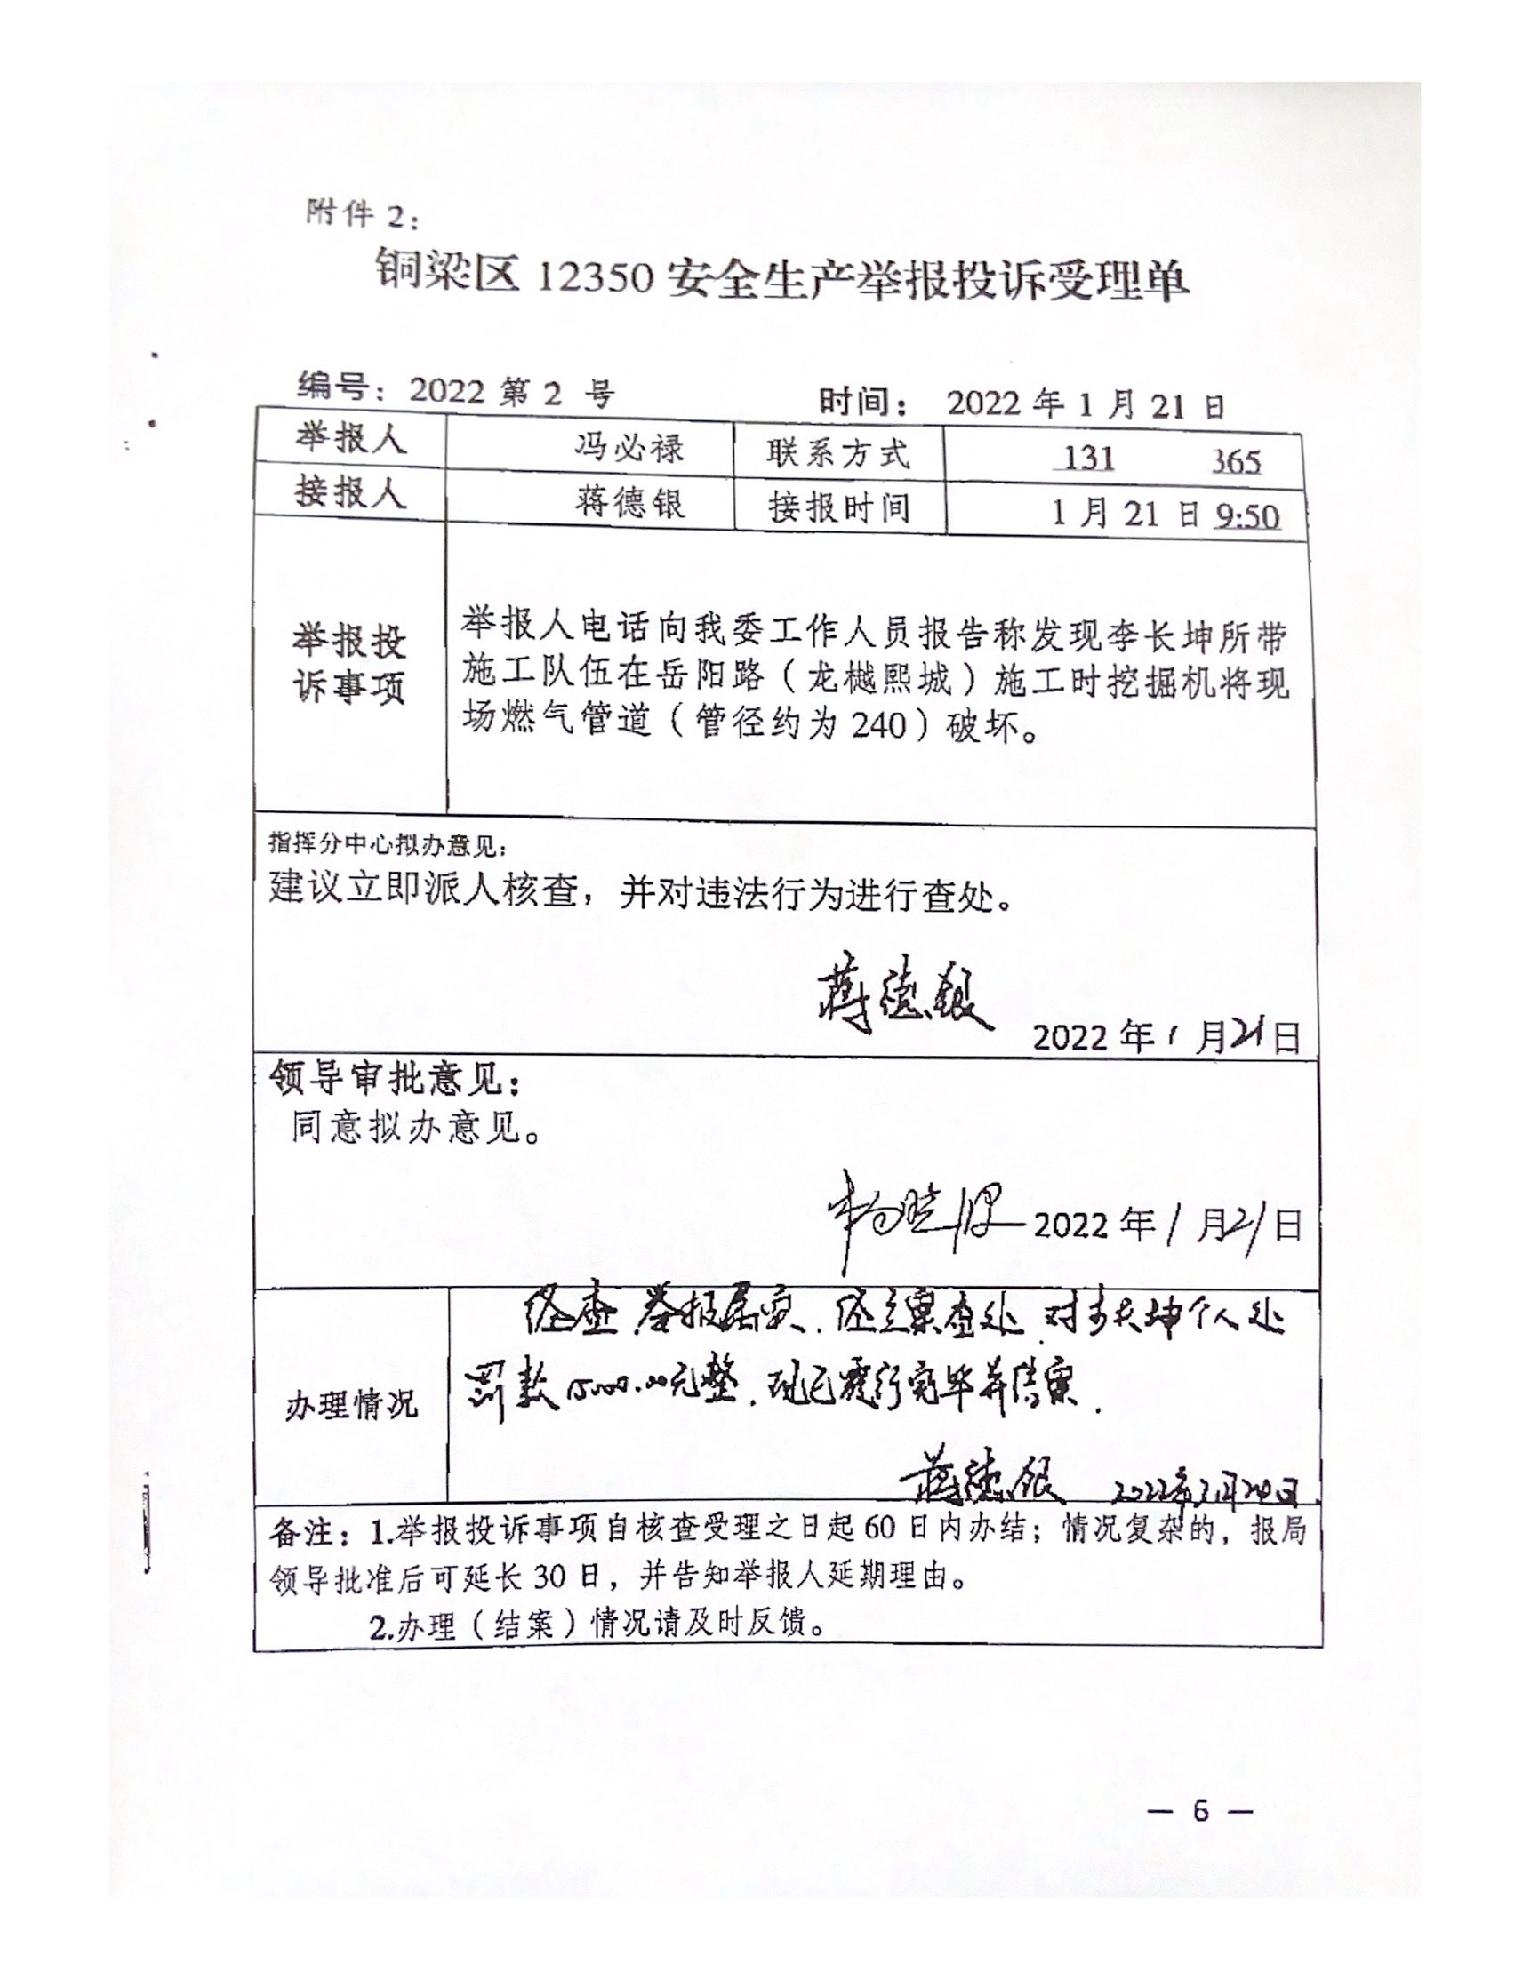 附件 2：
铜梁区 12350 安全生产举报投诉受理单
编号：2022 第 2 号 时间： 2022 年 1 月 21 日
举报人 冯必禄 联系方式 131 365
接报人 蒋德银 接报时间 1 月 21 日 9:50
举报投诉事项
举报人电话向我委工作人员报告称发现李长坤所带
施工队伍在岳阳路（龙樾熙城）施工时挖掘机将现
场燃气管道（管径约为 240）破坏。
指挥分中心拟办意见：
建议立即派人核查，并对违法行为进行查处。
蒋德银 2022 年 1 月 21 日
领导审批意见：
同意拟办意见。
2022 年 1 月 21 日
办理情况
经查，举报属实，经立案查处，对李长坤个人处
罚款15000.00元整，现已履行完毕并结案.
蒋德银 2022年3月24日.
备注：1.举报投诉事项自核查受理之日起 60 日内办结；情况复杂的，报局
领导批准后可延长 30 日，并告知举报人延期理由。
2.办理（结案）情况请及时反馈。
— 6 —